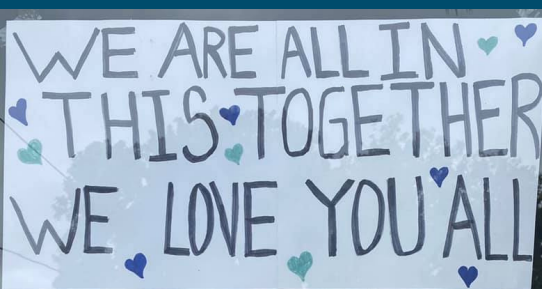 WE ARE ALL IN
THIS TOGETHER
WE LOVE YOU ALL